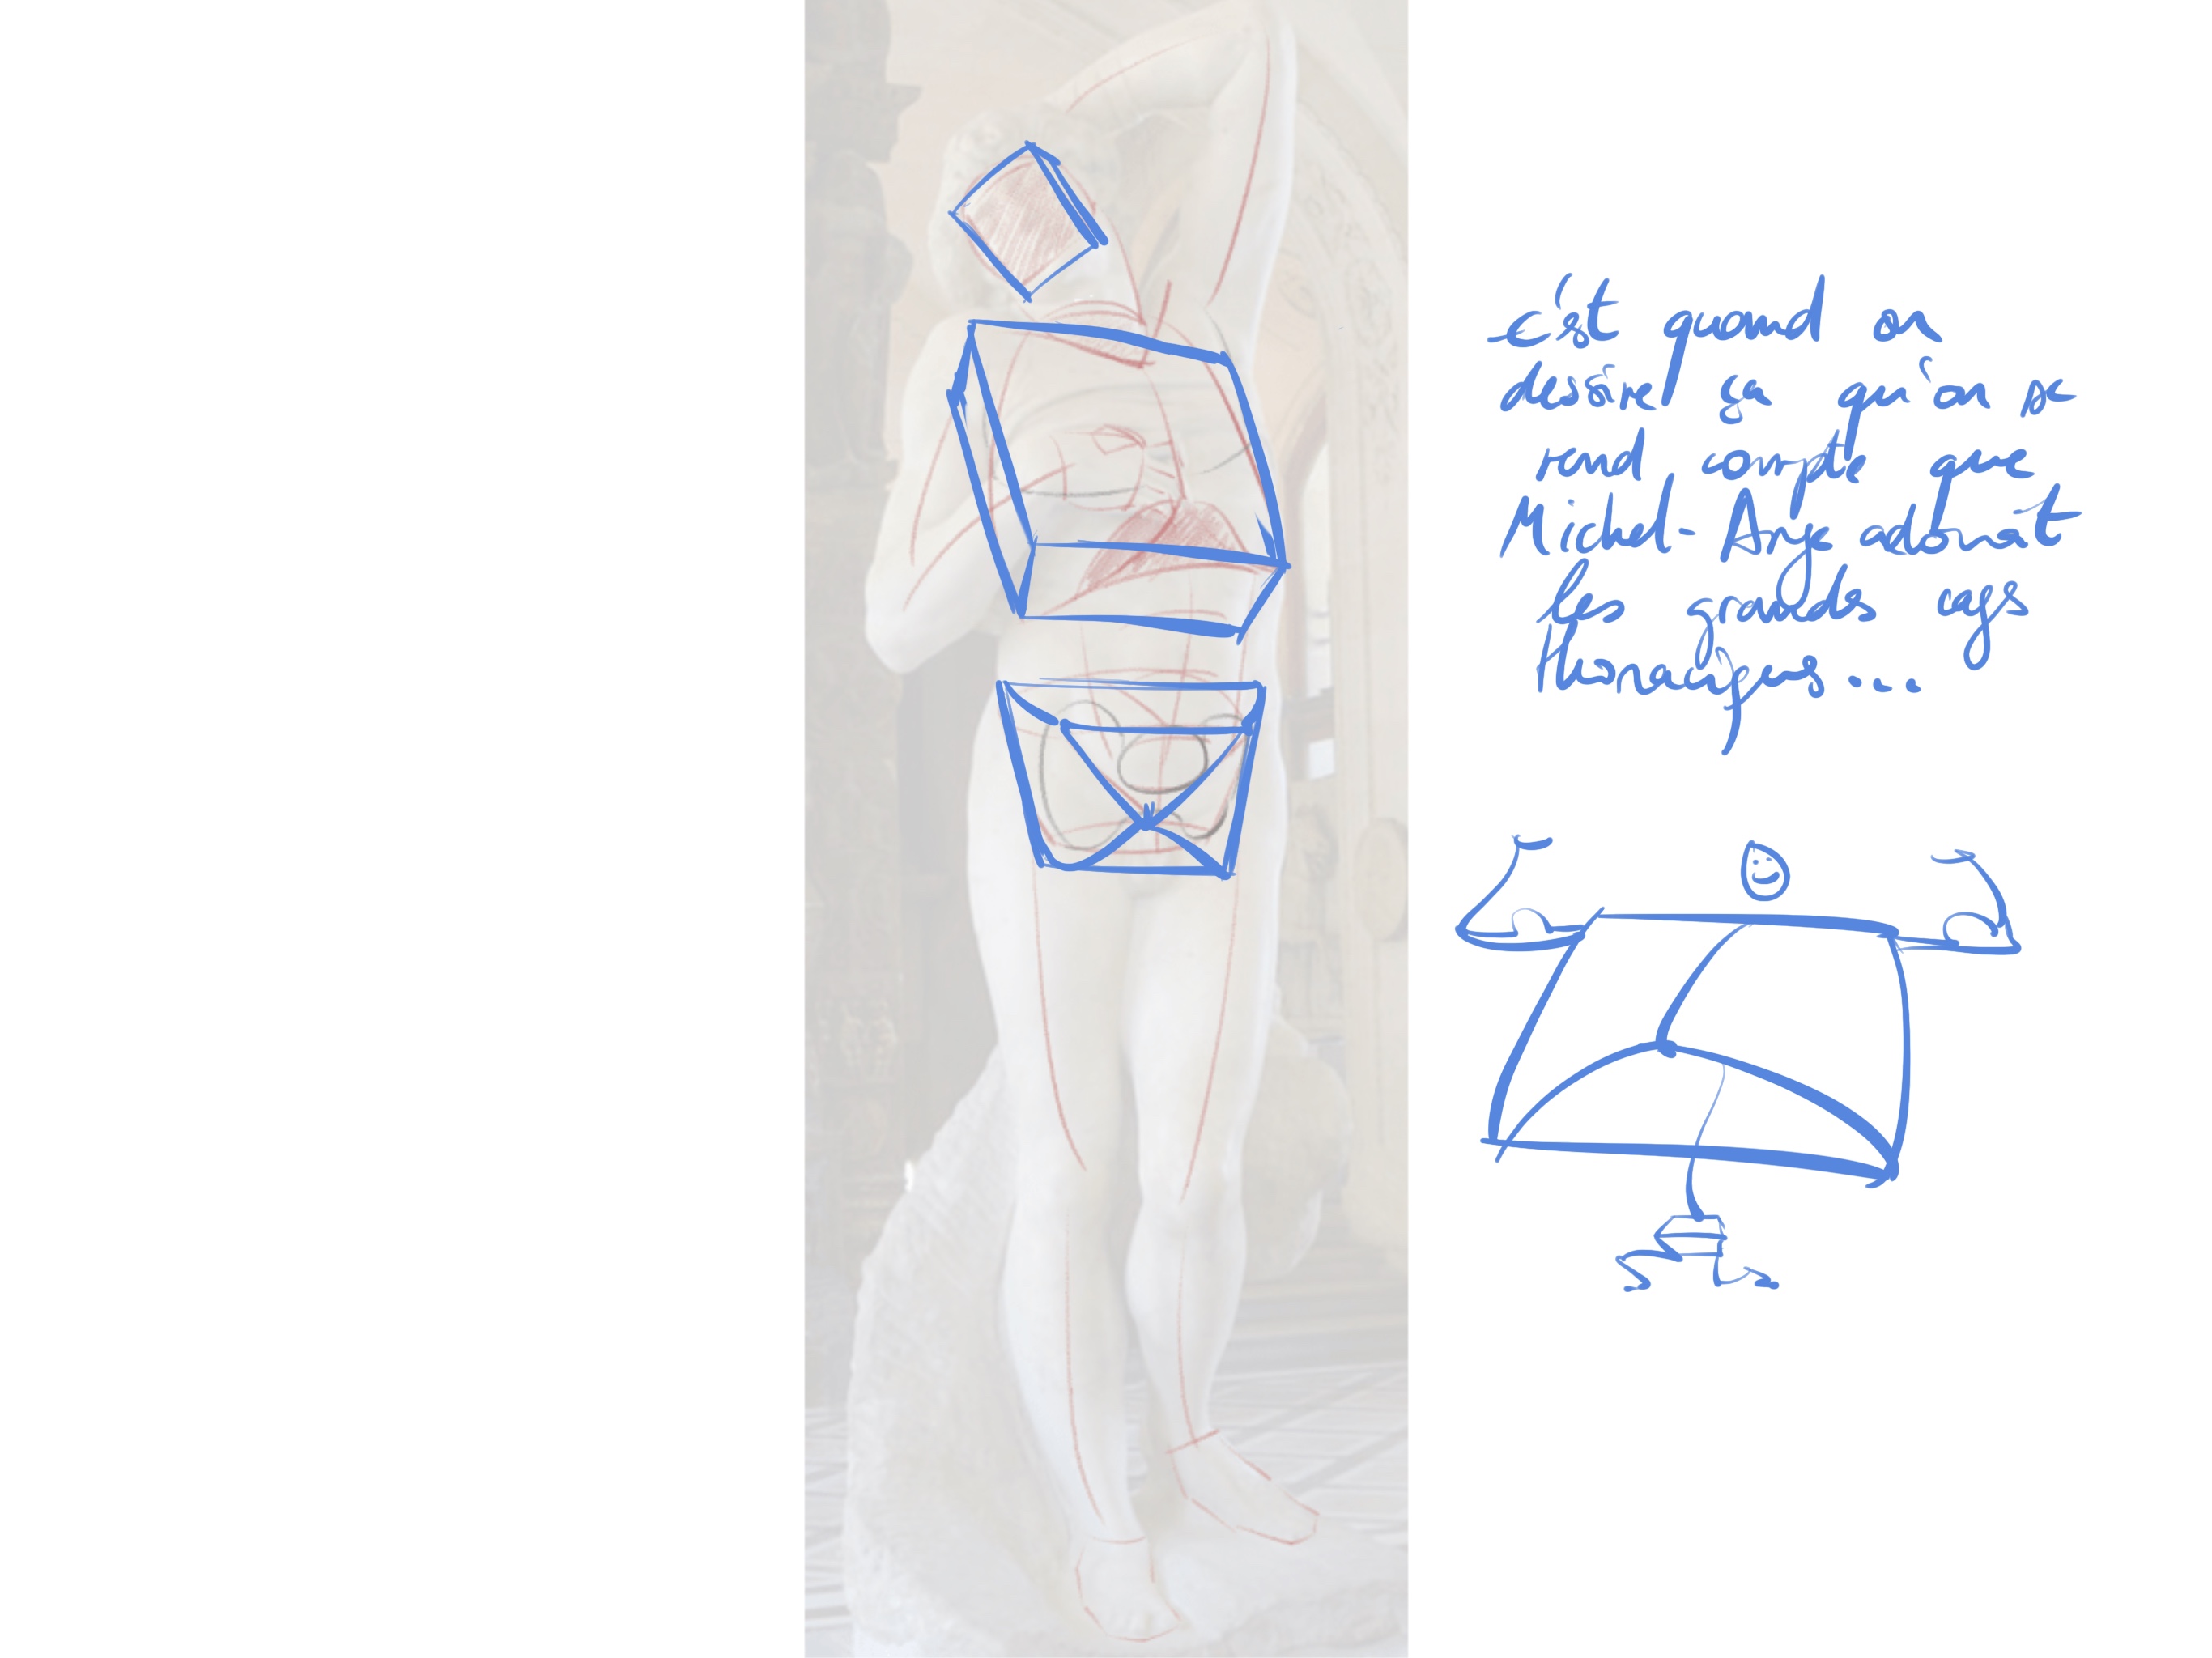 c'est quand on
dessine ça qu'on se
rend compte que
Michel-Ange adorait
les grandes cages
thoraciques...